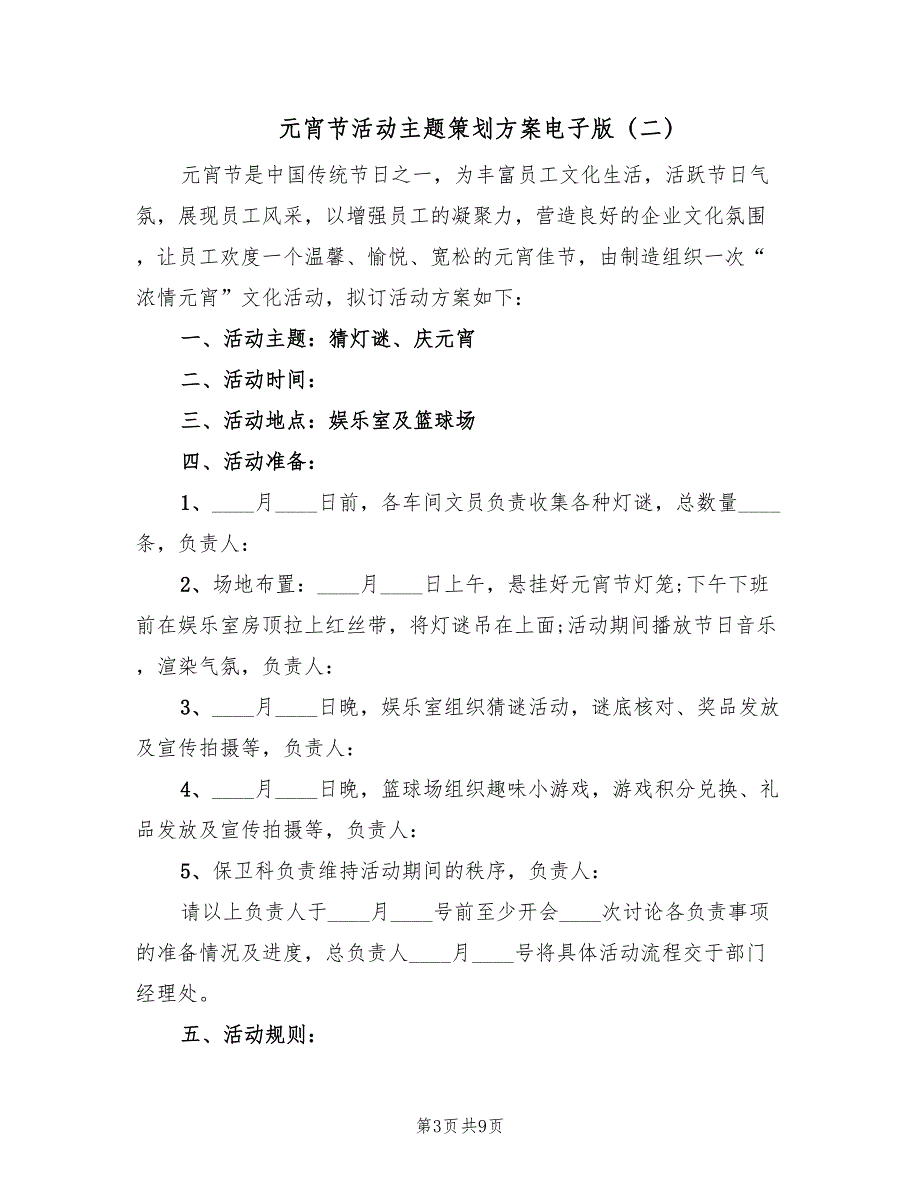 元宵节活动主题策划方案电子版（二）
元宵节是中国传统节日之一，为丰富员工文化生活，活跃节日气
氛，展现员工风采，以增强员工的凝聚力，营造良好的企业文化氛围
，让员工欢度一个温馨、愉悦、宽松的元宵佳节，由制造组织一次“
浓情元宵”文化活动，拟订活动方案如下：
一、活动主题：猜灯谜、庆元宵
二、活动时间：
三、活动地点：娱乐室及篮球场
四、活动准备：
1、____月____日前，各车间文员负责收集各种灯谜，总数量____
条，负责人：
2、场地布置：____月____日上午，悬挂好元宵节灯笼;下午下班
前在娱乐室房顶拉上红丝带，将灯谜吊在上面;活动期间播放节日音乐
，渲染气氛，负责人：
3、____月____日晚，娱乐室组织猜谜活动，谜底核对、奖品发放
及宣传拍摄等，负责人：
4、____月____日晚，篮球场组织趣味小游戏，游戏积分兑换、礼
品发放及宣传拍摄等，负责人：
5、保卫科负责维持活动期间的秩序，负责人：
请以上负责人于____月____号前至少开会____次讨论各负责事项
的准备情况及进度，总负责人____月____号将具体活动流程交于部门
经理处。
五、活动规则：
第3页共9页